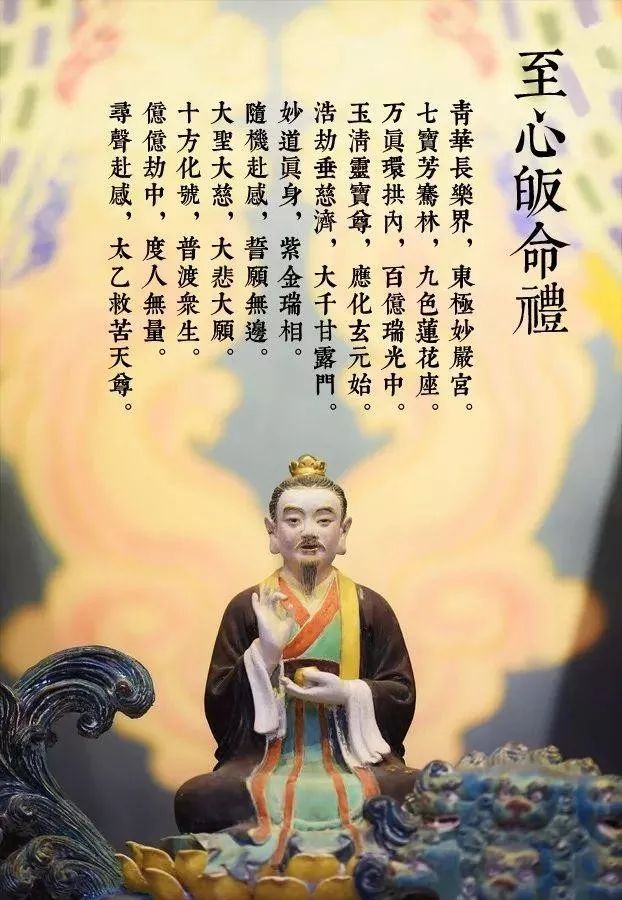 至心皈命禮
青華長樂界，東極妙嚴宮。
七寶芳騫林，九色蓮花座。
万眞環拱內，百億瑞光中。
玉清靈寶尊，應化玄元始。
浩劫垂慈濟，大千甘露門。
妙道眞身，紫金瑞相。
隨機赴感，誓願無邊。
大聖大慈，大悲大願。
十方化號，普渡衆生。
億億劫中，度人無量。
尋聲赴感，太乙救苦天尊。